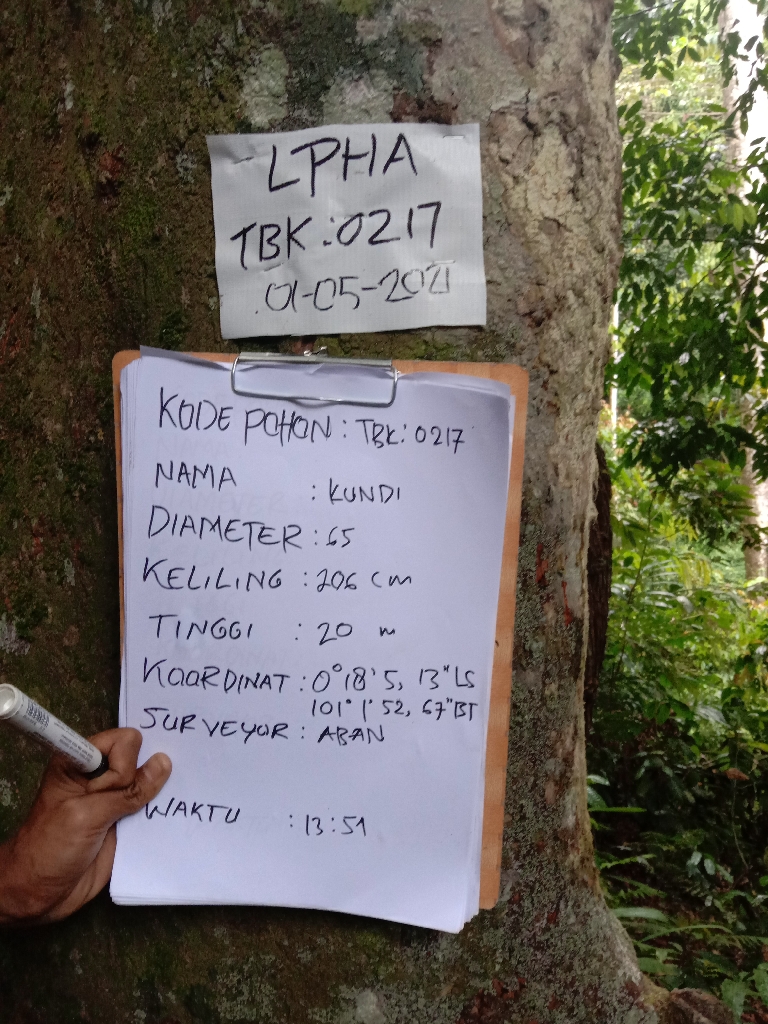 LPHA
TBK:0217
01-05-2021
KODE POHON : TBK: 0217
NAMA : KUNDI
DIAMETER : 65
KELILING : 206 cm
TINGGI : 20 m
KOORDINAT : 0° 18' 5, 13" LS
101° 1' 52, 67" BT
SURVEYOR : ABAN
WAKTU : 13:51